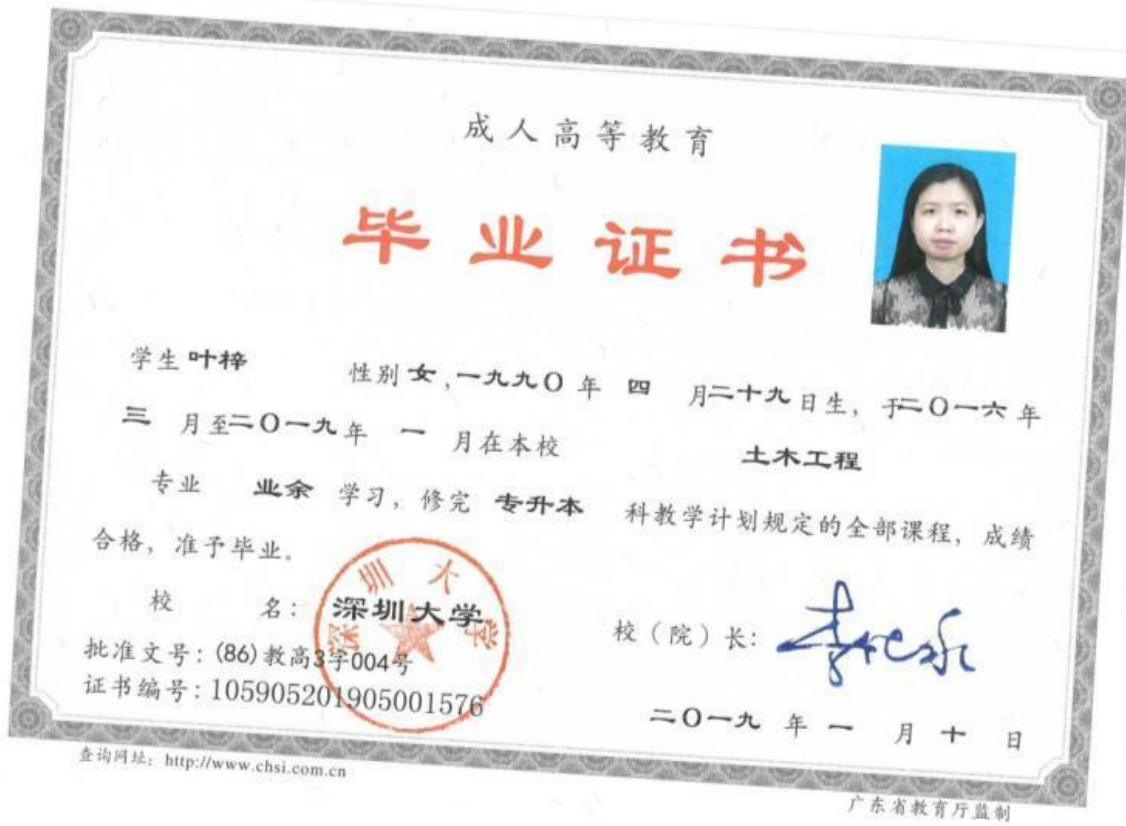 成人高等教育
毕业证书
学生 叶梓 性别 女,一九九〇 年 四 月二十九日生，于二〇一六年
三 月至二〇一九年 一 月在本校 土木工程
专业 业余 学习，修完 专升本 科教学计划规定的全部课程，成绩
合格，准予毕业。
校 名：深圳大学
深圳大学
校（院）长：
批准文号：(86)教高3字004号
证书编号：105905201905001576
二〇一九 年 一 月 十 日
查询网址：http://www.chsi.com.cn
广东省教育厅监制